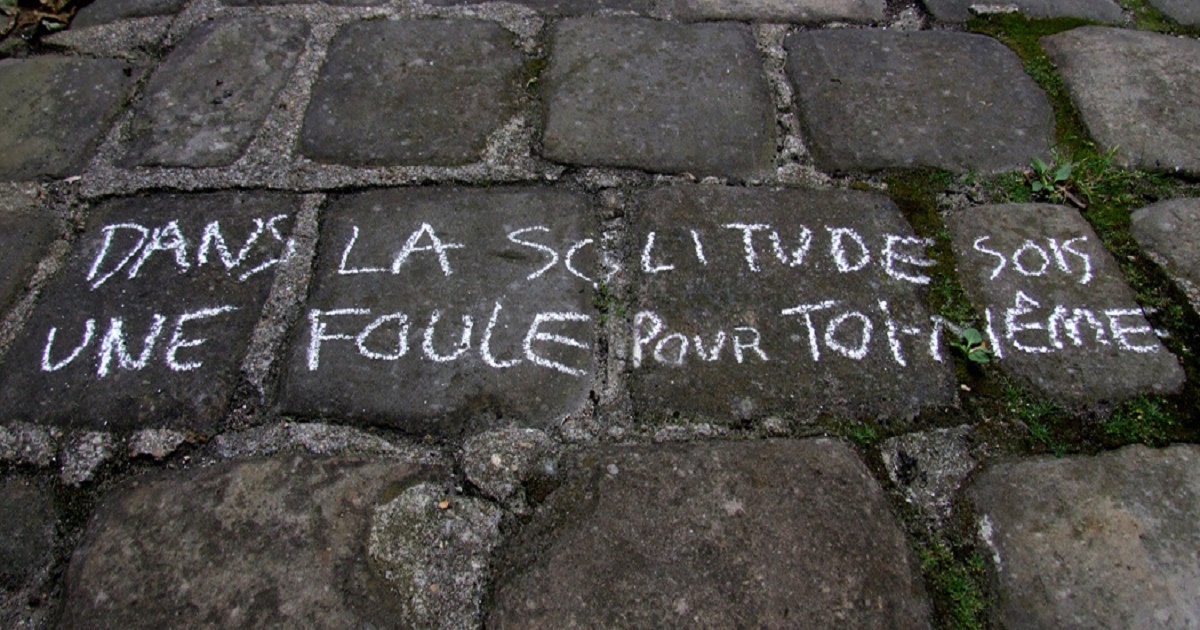 DANS LA SOLITUDE SOIS
UNE FOULE POUR TOI-MÊME